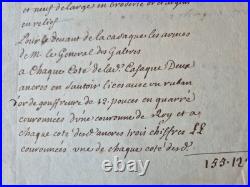 et neuf de large en broderie et d'argent
en relief
Pour le devant de la casaque les armes
de M. le General des Galeres
a Chaque Coté de lad.e Casaque Deux
ancres en Sautoir liees avec un ruban
d'or de gouffrure de 12. pouces en quarré
couronnées d'une couronne de Roy et a
chaque coté desd. ancres trois chiffres LL
couronnées une de chaque coté desd.
155-12